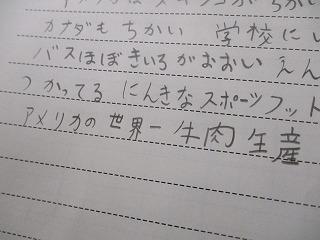 カナダも ちかい 学校に
バスほぼきいろがおおい えん
つかってる にんきなスポーツフット
アメリカの 世界一 牛肉 生産